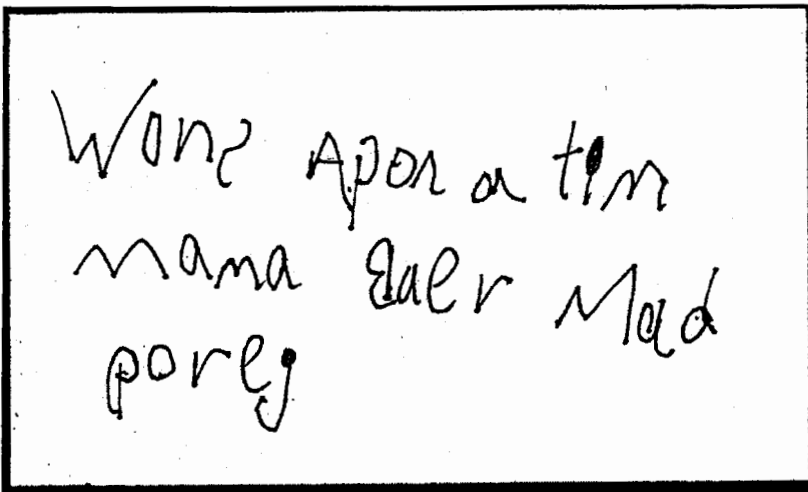 Wons Apon a tim
mama Baer Mad
poreg